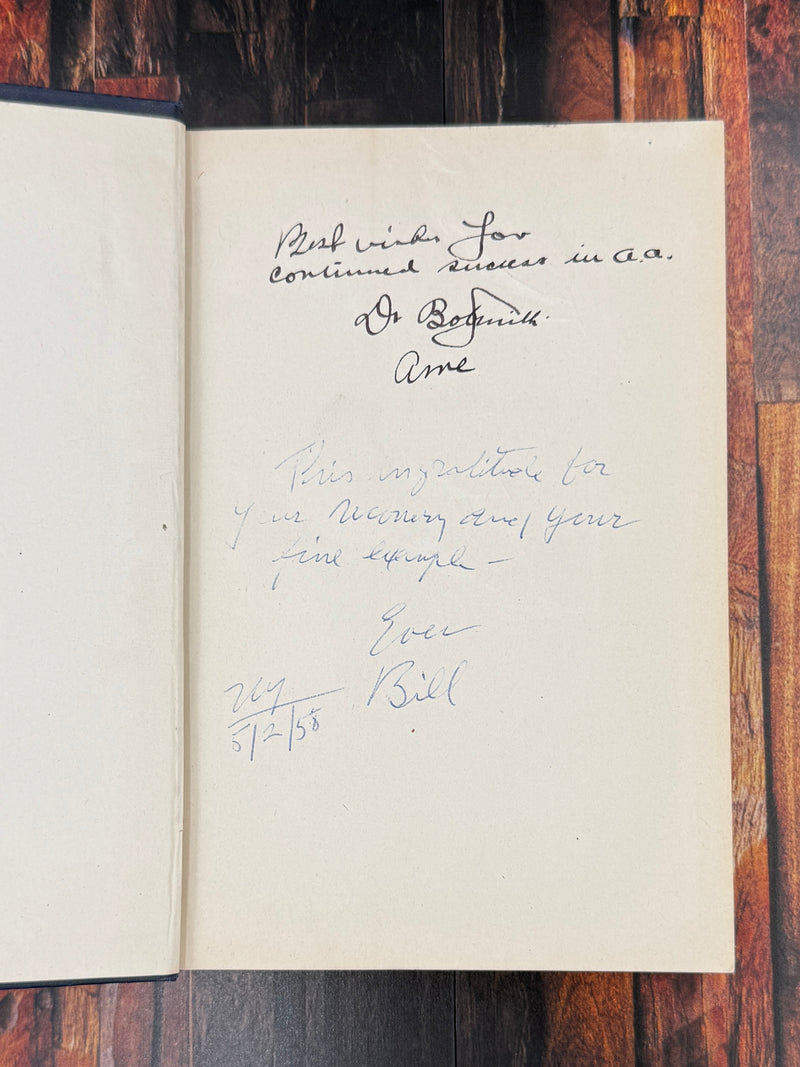 Best wishes for
continued success in a.a.
Dr Bob Smith
Anne
This in gratitude for
your recovery and your
fine example —
Ever
Bill
NY
5/2/58